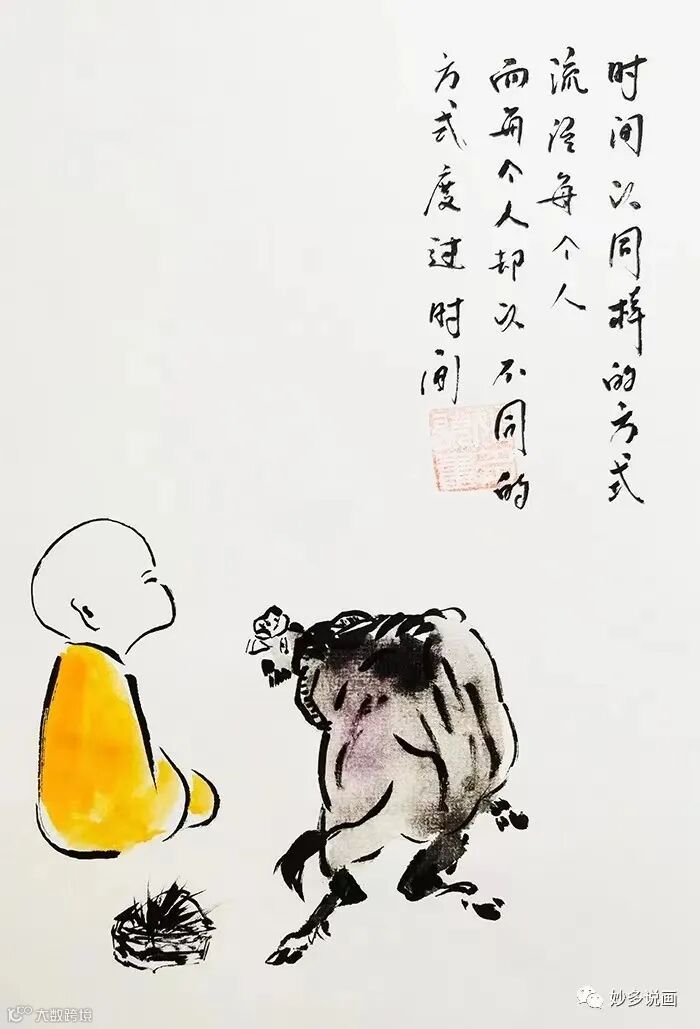 时间以同样的方式
流淫每个人
而每个人却以不同的
方式度过时间
妙多说画
大数跨境